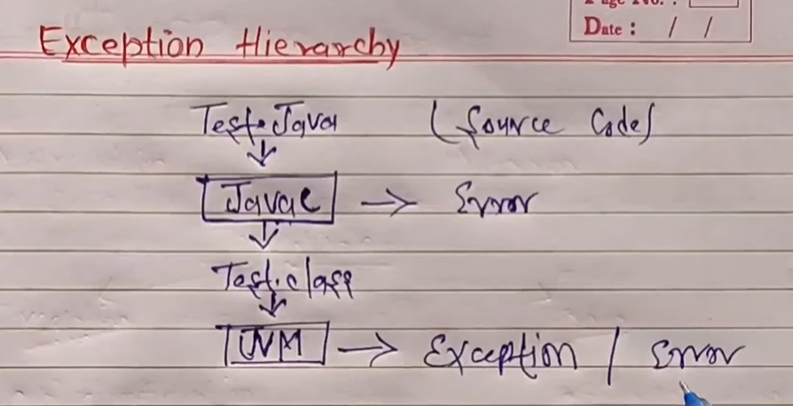 Page No. :
Date : / /
Exception Hierarchy
Test.Java (Source Code)
Javac → Error
Test.class
JVM → Exception / Error